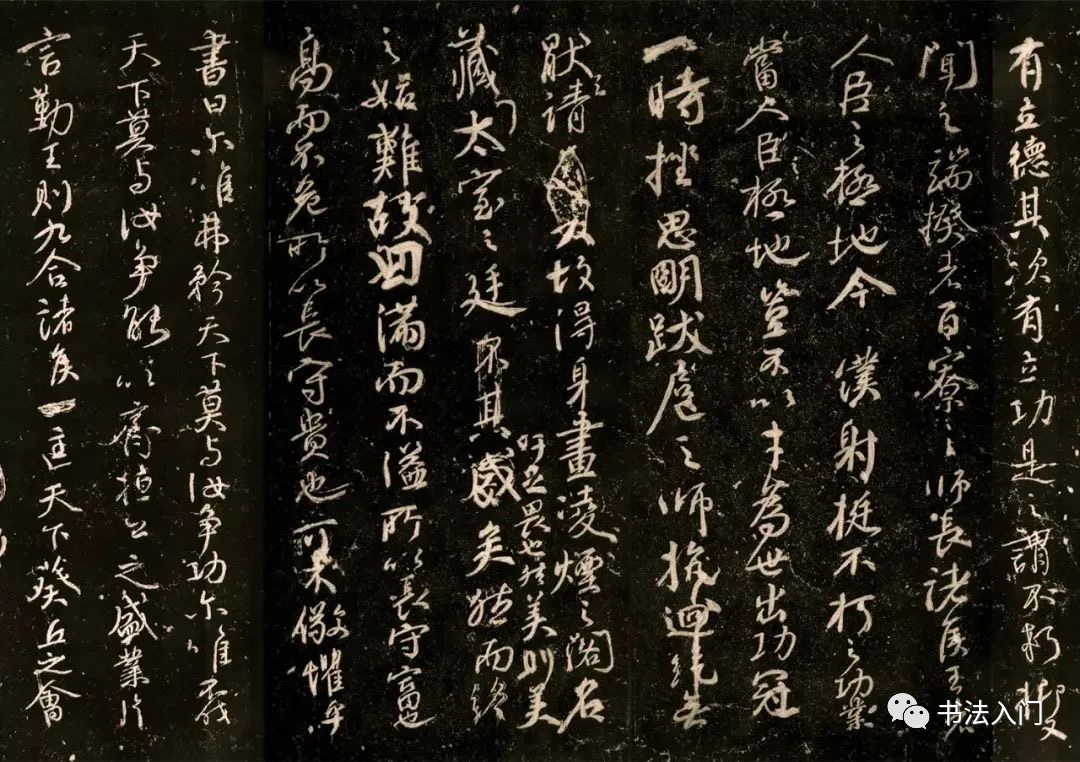 有立德其次有立功是之謂不朽抑又
聞之端揆者百寮之師長諸侯王者
人臣之極地今僕射挺不朽之功業
當人臣之極地豈不以才為世出功冠
一時挫思明跋扈之師抗迴紇無
厭之請故得身畫淩煙之閣名
藏太室之廷
吁足畏也然美則美
矣然而終
之始難故曰滿而不溢所以長守富也
高而不危所以長守貴也可不儆懼乎
書曰尔唯弗矜天下莫与汝爭功尔唯不伐
天下莫与汝爭能以齊桓公之盛業片
言勤王則九合諸侯一匡天下葵丘之會
书法入门